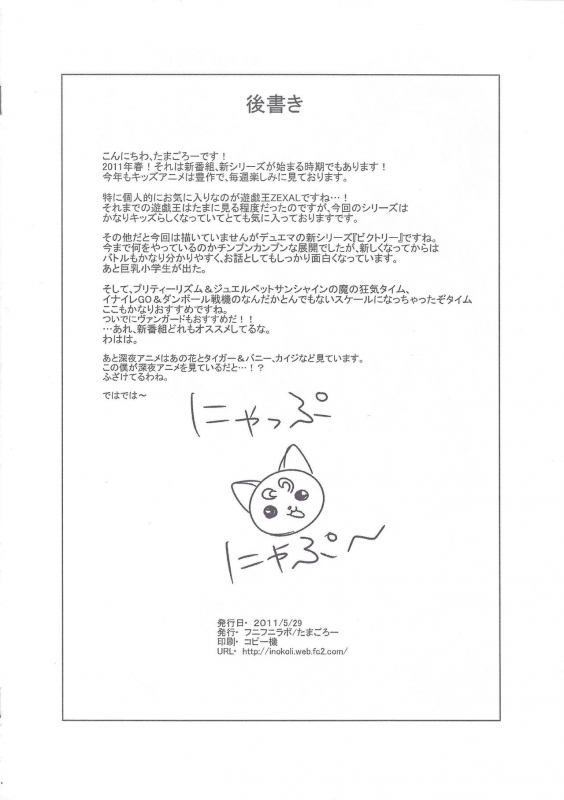 後書き
こんにちわ、たまごろーです！
2011年春！それは新番組、新シリーズが始まる時期でもあります！
今年もキッズアニメは豊作で、毎週楽しみに見ております。
特に個人的にお気に入りなのが遊戯王ZEXALですね…！
それまでの遊戯王はたまに見る程度だったのですが、今回のシリーズは
かなりキッズらしくなっていてとても気に入っておりますです。
その他だと今回は描いていませんがデュエマの新シリーズ『ビクトリー』ですね。
今まで何をやっているのかチンプンカンプンな展開でしたが、新しくなってからは
バトルもかなり分かりやすく、お話としてもしっかり面白くなっています。
あと巨乳小学生が出た。
そして、プリティーリズム＆ジュエルペットサンシャインの魔の狂気タイム、
イナイレGO＆ダンボール戦機のなんだかとんでもないスケールになっちゃったぞタイム
ここもかなりおすすめですね。
ついでにヴァンガードもおすすめだ！！
…あれ、新番組どれもオススメしてるな。
わはは。
あと深夜アニメはあの花とタイガー＆バニー、カイジなど見ています。
この僕が深夜アニメを見ているだと…！？
ふざけてるわね。
ではでは～
にゃっぷ
にゃぷ～
発行日・ 2011/5/29
発行・ フニフニラボ/たまごろー
印刷・ コピー機
URL・ http://inokoli.web.fc2.com/